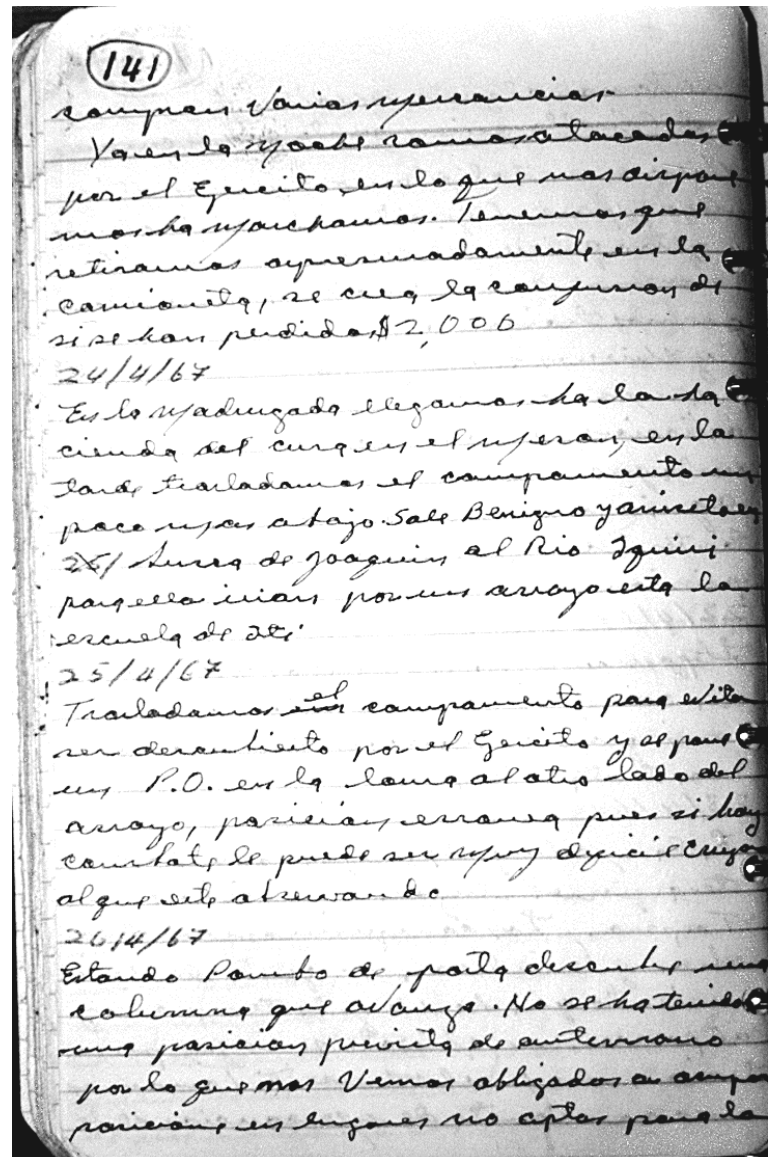 141
compran varias mercancias
Ya en la noche somos atacados
por el Ejercito, en lo que nos dispone
mos ha marcharnos. Tenemos que
retirarnos apresuradamente en la
camioneta, se crea la confusion de
si se han perdido $2,000
24/4/67
En la madrugada llegamos ha la ha
cienda del cura en el meson, en la
tarde trasladamos el campamento un
poco mas abajo. Sale Benigno y aniceto en
busca de Joaquin al Rio Iquiri
para ello irian por un arroyo esta la
escuela de iti
25/4/67
Trasladamos el campamento para evitar
ser descubierto por el Ejercito y se pone
un P.O. en la loma al otro lado del
arroyo, posicion erronea pues si hay
combate le puede ser muy dificil
al que este observando
26/4/67
Estando Pombo de posta descubre una
columna que avanza. No se ha tenido
una posicion prevista de antemano
por lo que nos vemos obligados a ocupar
posicione en lugares no aptos para la